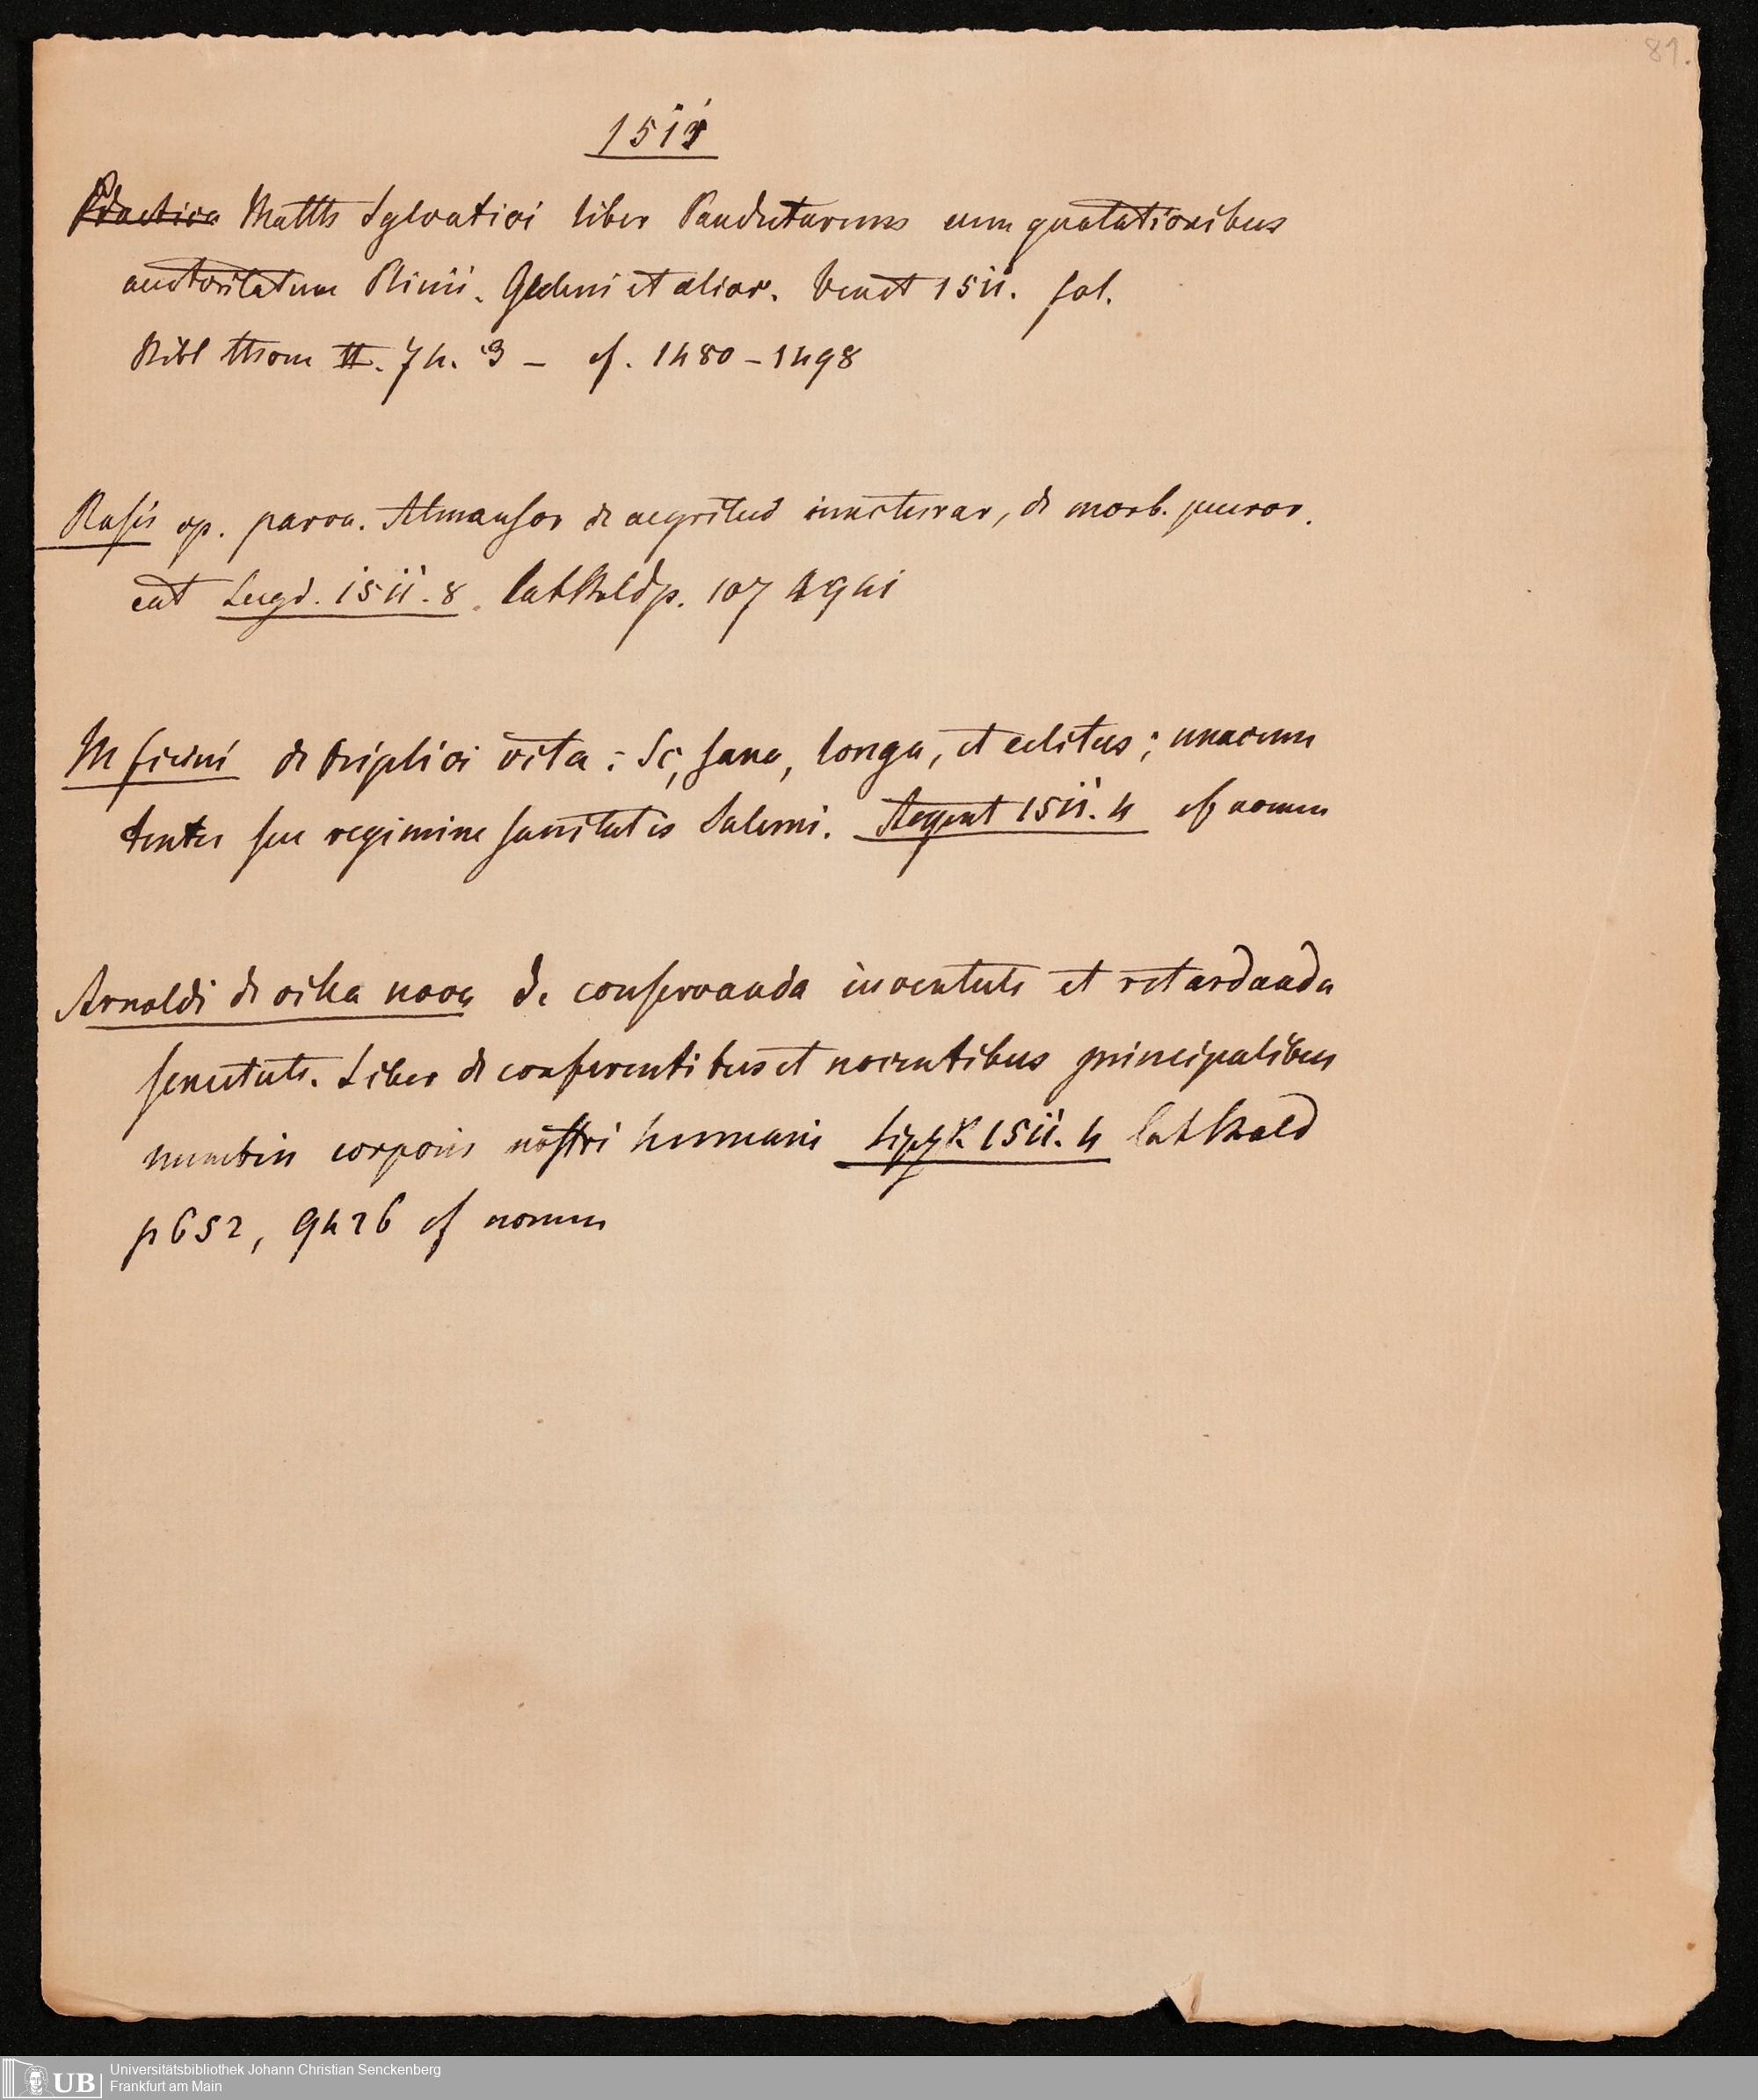 81.
1511
Practica Matth Sylvatici liber Pandectarum cum quotationibus
auctoritatum Plinii. Galeni et alior. Venet 1511. fol.
Bibl Thom II. 74. 3 – cf. 1480–1498
Rasis op. parva. Almansor de aegritud iuncturar, de morb. pueror.
cat Lugd. 1511. 8.
M ficini de triplici vita: Sc, sana, longa, et celitus; unacum
textu seu regimine sanitatis Salerni. Argent 1511. 4 cf nomen
Arnoldi de villa nova de conservanda iuventute et retardanda
senectute. Liber de conferentibus et nocentibus principalibus
membris corporis nostri humani Lipz 1511. 4
p 652, 9426 cf nomen
UB Universitätsbibliothek Johann Christian Senckenberg
Frankfurt am Main